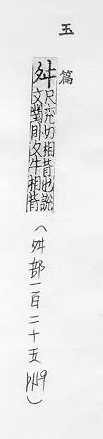 玉篇
舛
尺兗切相背也說
文對臥夂牛相背
(舛部一百二十五 p149)